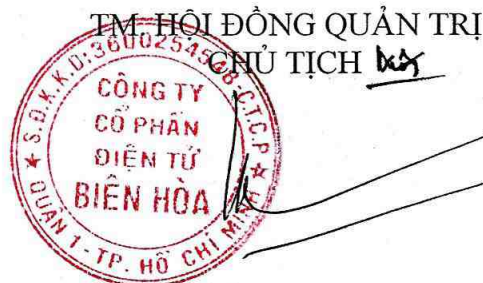 TM. HỘI ĐỒNG QUẢN TRỊ
CHỦ TỊCH
S.Đ.K.K.D:3600254548-C.T.C.P
CÔNG TY
CỔ PHẦN
ĐIỆN TỬ
BIÊN HÒA
QUẬN 1 - TP. HỒ CHÍ MINH